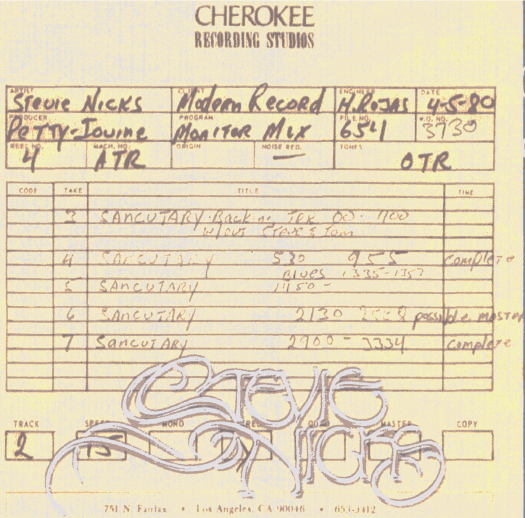 CHEROKEE
RECORDING STUDIOS
ARTIST CLIENT ENGINEER DATE
Stevie Nicks Modern Record H. Rojas 4-5-80
PRODUCER PROGRAM FILE NO. W.O. NO.
Petty-Iovine Monitor Mix 6541 3730
REEL NO. MACH. NO. ORIGIN NOISE RED. TONES
4 ATR — OTR
CODE TAKE TITLE TIME
3 SANCUTARY Backing TRK 00-
w/out Stevie & Tom
4 SANCUTARY 530 955 complete
Blues 1335-1357
5 SANCUTARY
6 SANCUTARY 2130 possible master
7 Sancutary 2900-3334 complete
TRACK MONO MASTER COPY
2 15
Stevie
Nicks
751 N. Fairfax • Los Angeles, CA 90046 • 653-3412